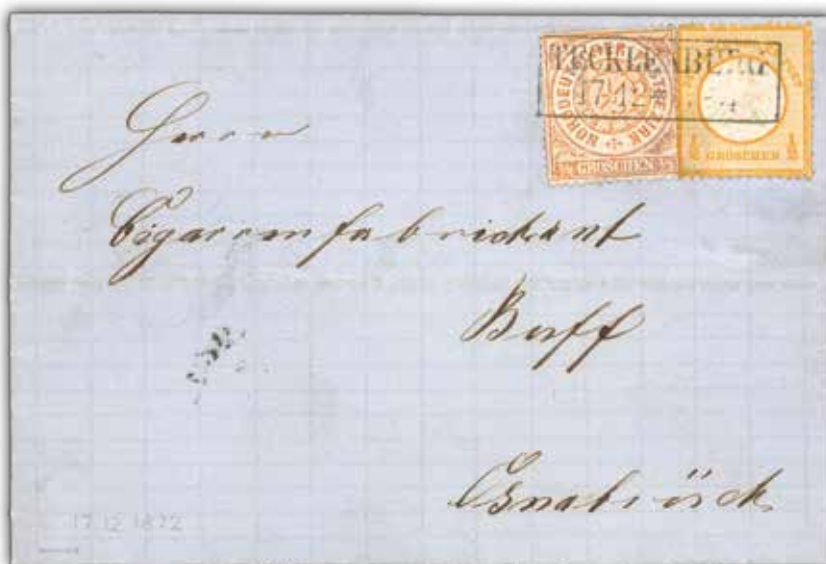 TECKLENBURG
17 12
NORDDEUTSCHER POSTBEZIRK
1/2 GROSCHEN 1/2
1/2 GROSCHEN 1/2
Herrn
Cigarrenfabrikant
Buff
Osnabrück
17 12 1872